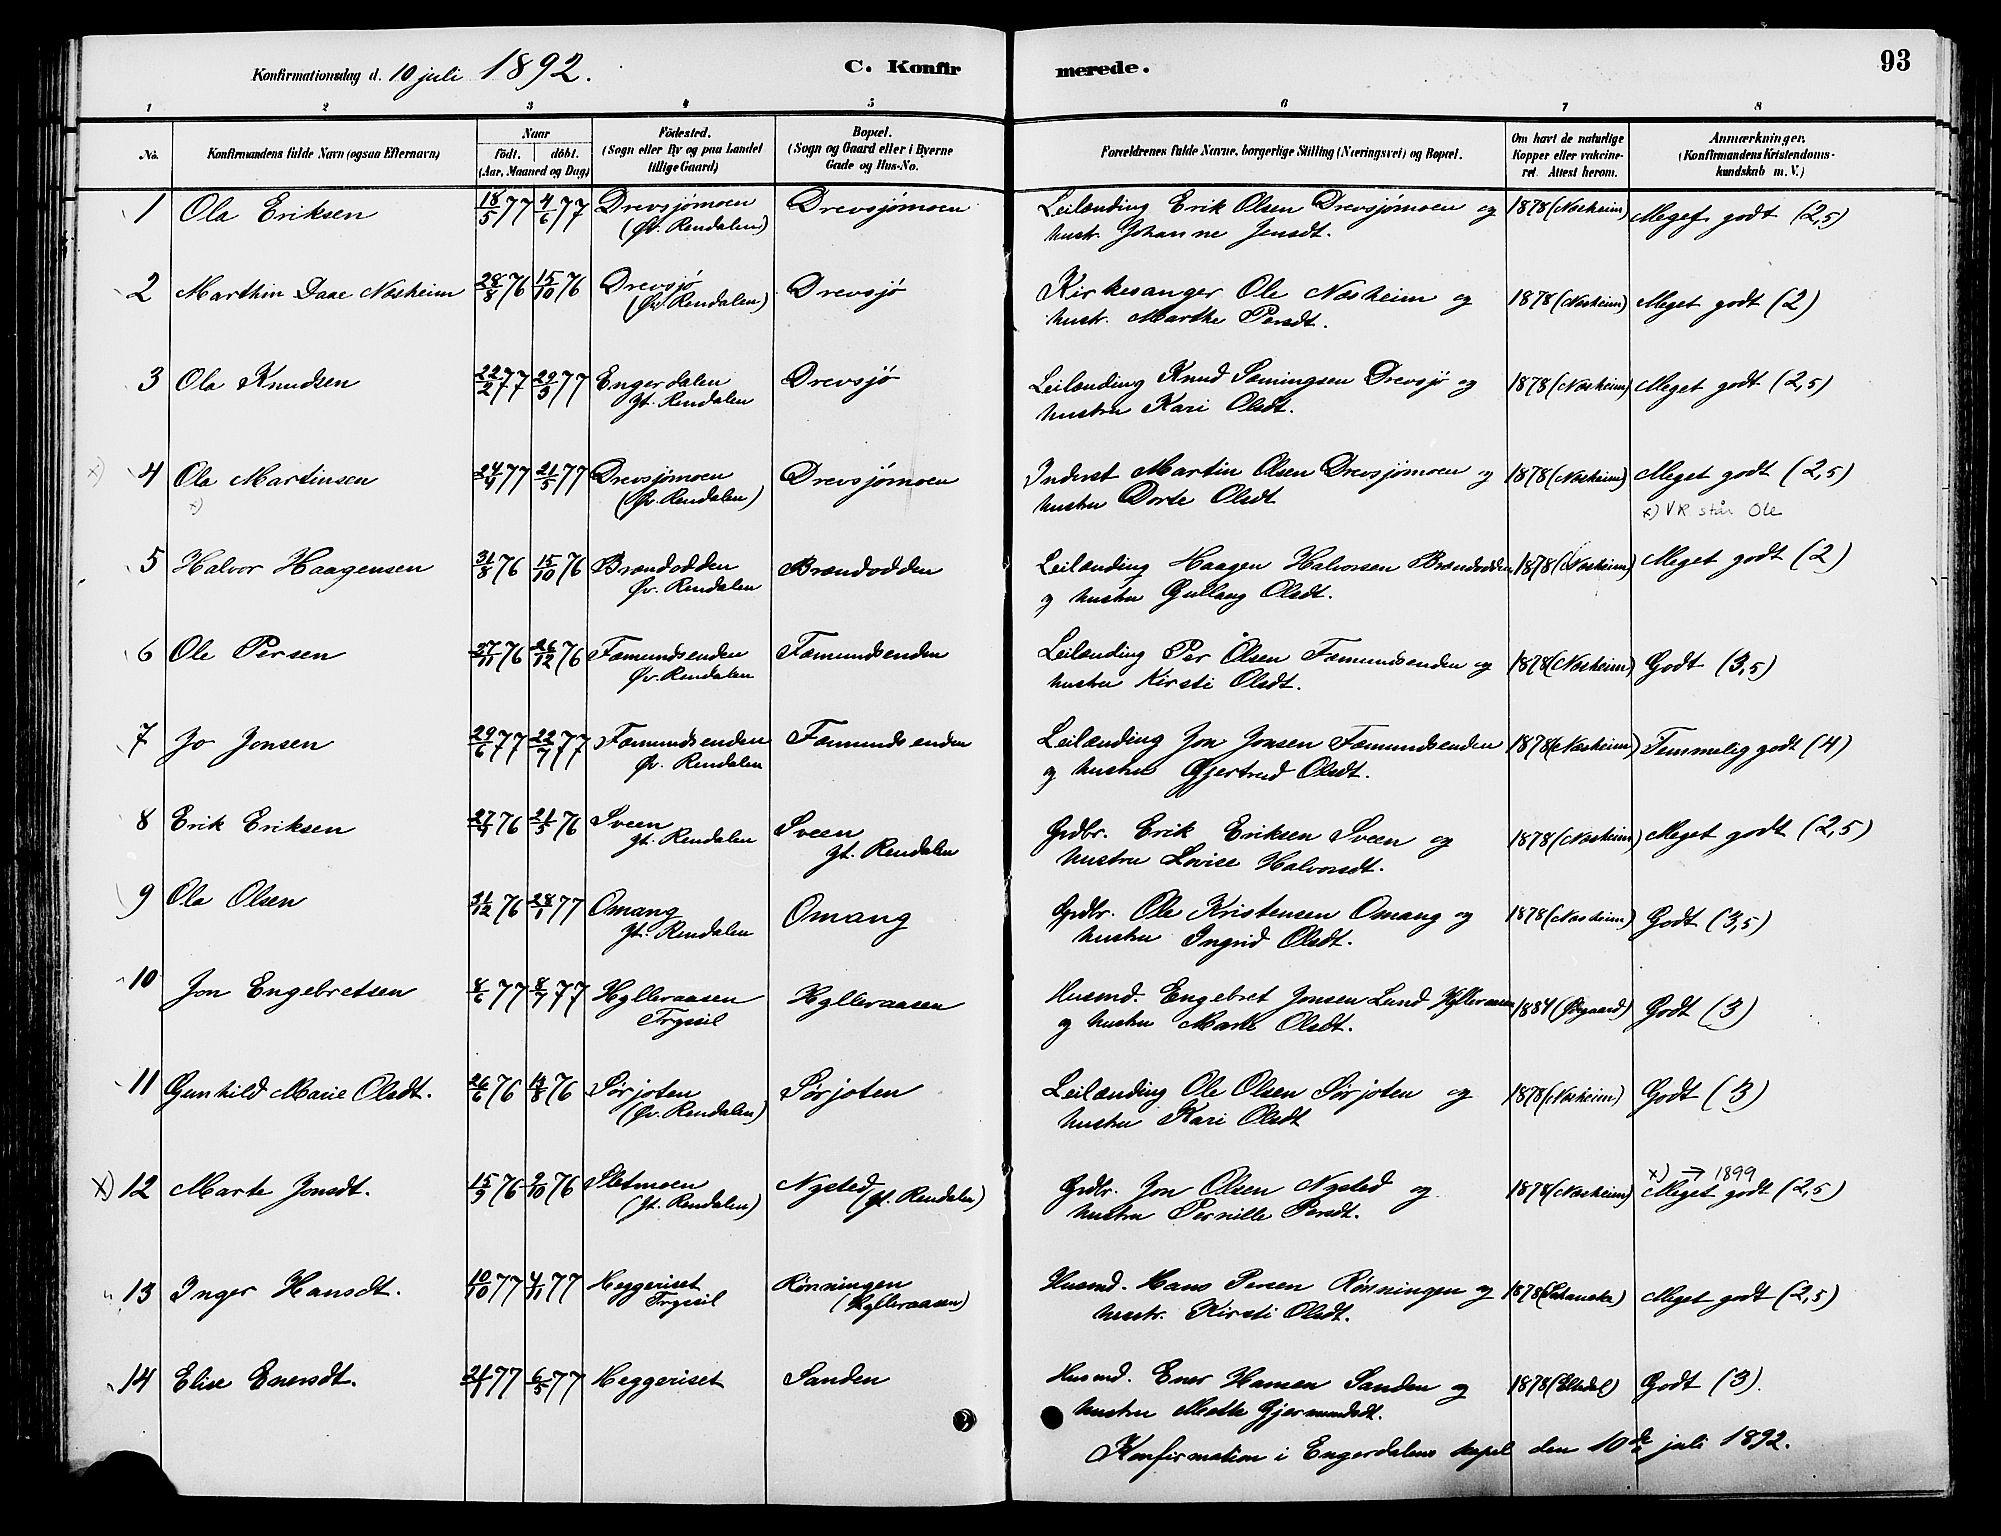 Konfirmationsdag d. 10 juli 1892.
C. Konfirmerede.
93
1 2 3 4 5 6 7 8
No.
Konfirmandens fulde Navn (ogsaa Efternavn)
Naar
födt. döbt.
(Aar, Maaned og Dag)
Födested.
(Sogn eller By og paa Landet
tillige Gaard)
Bopæl.
(Sogn og Gaard eller i Byerne
Gade og Hus-No.
Forældrenes fulde Navne, borgerlige Stilling (Næringsvei) og Bopæl.
Om havt de naturlige
Kopper eller vakcine-
ret. Attest herom.
Anmærkninger.
(Konfirmandens Kristendoms-
kundskab m. V.)
1 Ola Eriksen 18/5 77 4/6 77 Drevsjømoen Drevsjømoen Leilænding Erik Olsen Drevsjømoen og 1878 (Nosheim) Meget godt (2,5)
(Øv. Rendalen) hustr. Johanne Jensdt.
2 Marthin Daae Nosheim 28/8 76 15/10 76 Drevsjø Drevsjø Kirkesanger Ole Nosheim og 1878 (Nosheim) Meget godt (2)
(Øv. Rendalen) hustr. Marthe Persdt.
3 Ola Knudsen 22/2 77 29/3 77 Engerdalen Drevsjø Leilænding Knud Samingsen Drevsjø og 1878 (Nosheim) Meget godt (2,5)
Yt. Rendalen hustru Kari Olsdt.
x) 4 Ola Martinsen 24/4 77 21/5 77 Drevsjømoen Drevsjømoen Inderst Martin Olsen Drevsjømoen og 1878 (Nosheim) Meget godt (2,5)
x) (Øv. Rendalen) hustru Dorte Olsdt x) VR står Ole
5 Halvor Haagensen 31/8 76 15/10 76 Brændodden Brændodden Leilænding Haagen Halvorsen Brændodden 1878 (Nosheim) Meget godt (2)
Øv. Rendalen og hustru Gullaug Olsdt.
6 Ole Persen 27/11 76 26/12 76 Fæmundsenden Fæmundsenden Leilænding Per Olsen Fæmundsenden og 1878 (Nosheim) Godt (3,5)
Øv. Rendalen hustru Kirsti Olsdt.
7 Jo Jonsen 29/6 77 22/7 77 Fæmundsenden Fæmundsenden Leilænding Jon Jonsen Fæmundsenden 1878 (Nosheim) Temmelig godt (4)
Øv. Rendalen og hustru Gjertrud Olsdt.
8 Erik Eriksen 27/4 76 21/5 76 Sveen Sveen Grdbr. Erik Eriksen Sveen og 1878 (Nosheim) Meget godt (2,5)
Yt. Rendalen Yt. Rendalen hustru Lovise Halvorsdt.
9 Ola Olsen 31/12 76 28/1 77 Omang Omang Grdbr. Ole Kristensen Omang og 1878 (Nosheim) Godt (3,5)
Yt. Rendalen hustru Ingrid Olsdt.
10 Jon Engebretsen 8/6 77 8/7 77 Hylleraasen Hylleraasen Husmd. Engebret Jonsen Lund Hylleraasen 1884 (Ødegaard) Godt (3)
Trysil og hustru Marte Olsdt.
11 Gunhild Marie Olsdt. 26/6 76 13/8 76 Sørjoten Sørjoten Leilænding Ole Olsen Sørjoten og 1878 (Nosheim) Godt (3)
(Øv. Rendalen) hustru Kari Olsdt
x) → 1899
x) 12 Marte Jonsdt. 15/9 76 2/10 76 Sletmoen Nysted Grdbr. Jon Olsen Nysted og 1878 (Nosheim) Meget godt (2,5)
(Yt. Rendalen) (Yt. Rendalen) hustru Pernille Persdt.
13 Inger Hansdt. 10/10 77 4/11 77 Heggeriset Rønningen Husmd. Hans Persen Rønningen og 1878 Meget godt (2,5)
Trysil (Hylleraasen) hustr. Kirsti Olsdt.
14 Elise Enersdt. 77 6/5 77 Heggeriset Sanden Husmd. Ener Hansen Sanden og 1878 (Elsdal) Godt (3).
hustru Mette Gjermundsdt.
Konfirmation i Engerdalens kapel den 10de juli 1892.